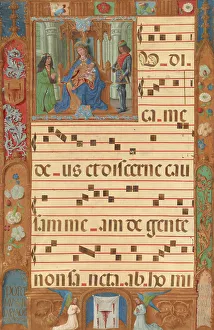 U_DI
CA. ME
de_us et discerne cau
sam me_am de gente
non sa_ncta_ab_homi